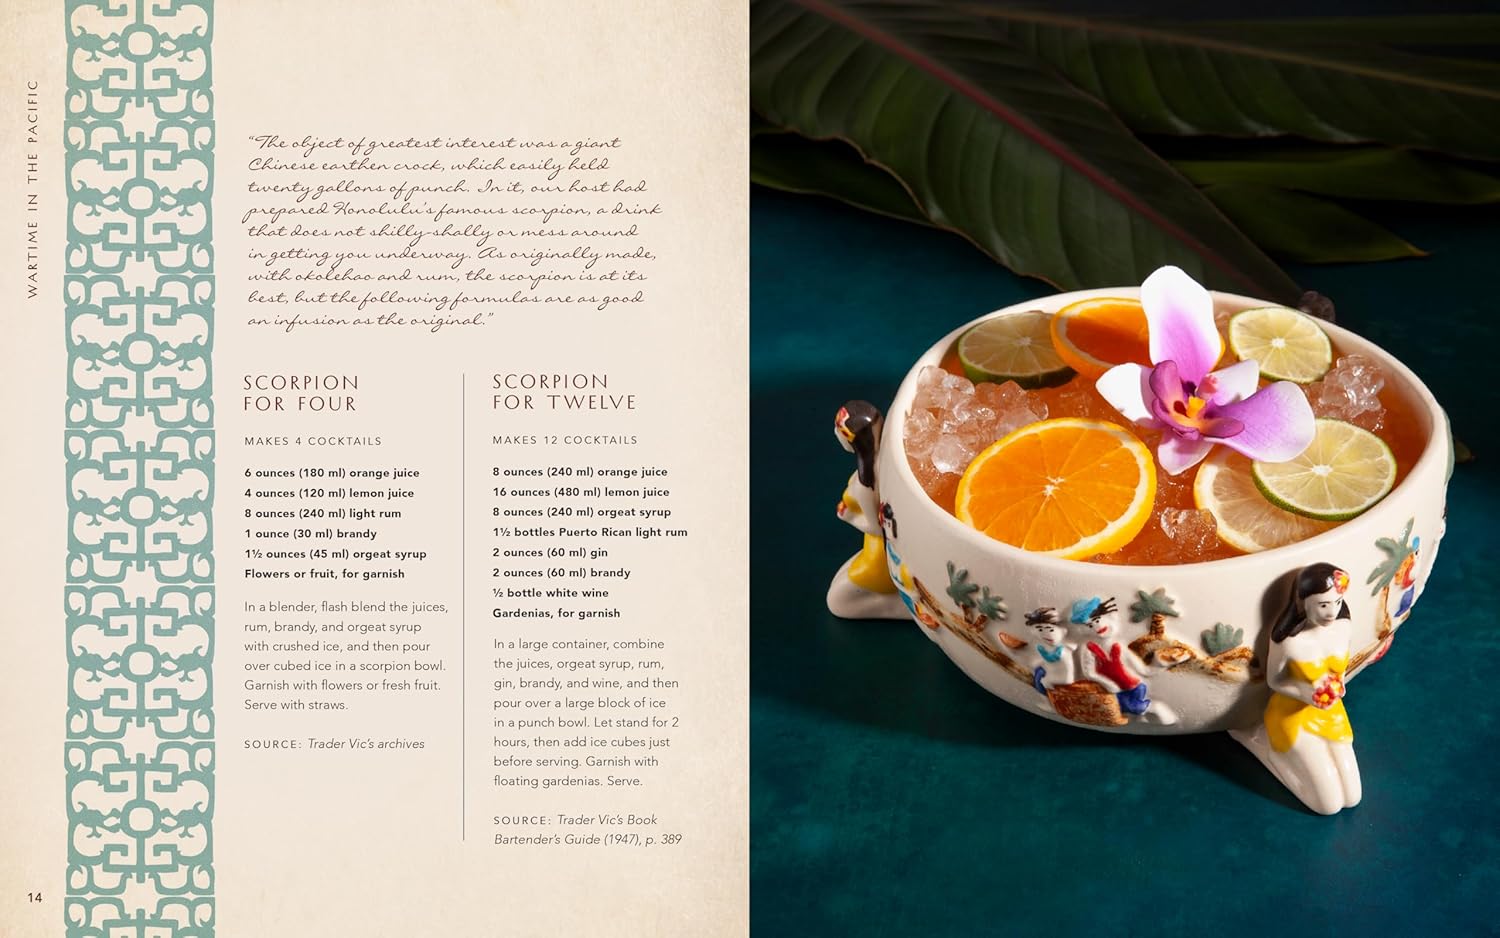 WARTIME IN THE PACIFIC
“The object of greatest interest was a giant
Chinese earthen crock, which easily held
twenty gallons of punch. In it, our host had
prepared Honolulu’s famous scorpion, a drink
that does not shilly-shally or mess around
in getting you underway. As originally made,
with okolehao and rum, the scorpion is at its
best, but the following formulas are as good
an infusion as the original.”
SCORPION
FOR FOUR
MAKES 4 COCKTAILS
6 ounces (180 ml) orange juice
4 ounces (120 ml) lemon juice
8 ounces (240 ml) light rum
1 ounce (30 ml) brandy
1½ ounces (45 ml) orgeat syrup
Flowers or fruit, for garnish
In a blender, flash blend the juices,
rum, brandy, and orgeat syrup
with crushed ice, and then pour
over cubed ice in a scorpion bowl.
Garnish with flowers or fresh fruit.
Serve with straws.
SOURCE: Trader Vic’s archives
SCORPION
FOR TWELVE
MAKES 12 COCKTAILS
8 ounces (240 ml) orange juice
16 ounces (480 ml) lemon juice
8 ounces (240 ml) orgeat syrup
1½ bottles Puerto Rican light rum
2 ounces (60 ml) gin
2 ounces (60 ml) brandy
½ bottle white wine
Gardenias, for garnish
In a large container, combine
the juices, orgeat syrup, rum,
gin, brandy, and wine, and then
pour over a large block of ice
in a punch bowl. Let stand for 2
hours, then add ice cubes just
before serving. Garnish with
floating gardenias. Serve.
SOURCE: Trader Vic’s Book
Bartender’s Guide (1947), p. 389
14